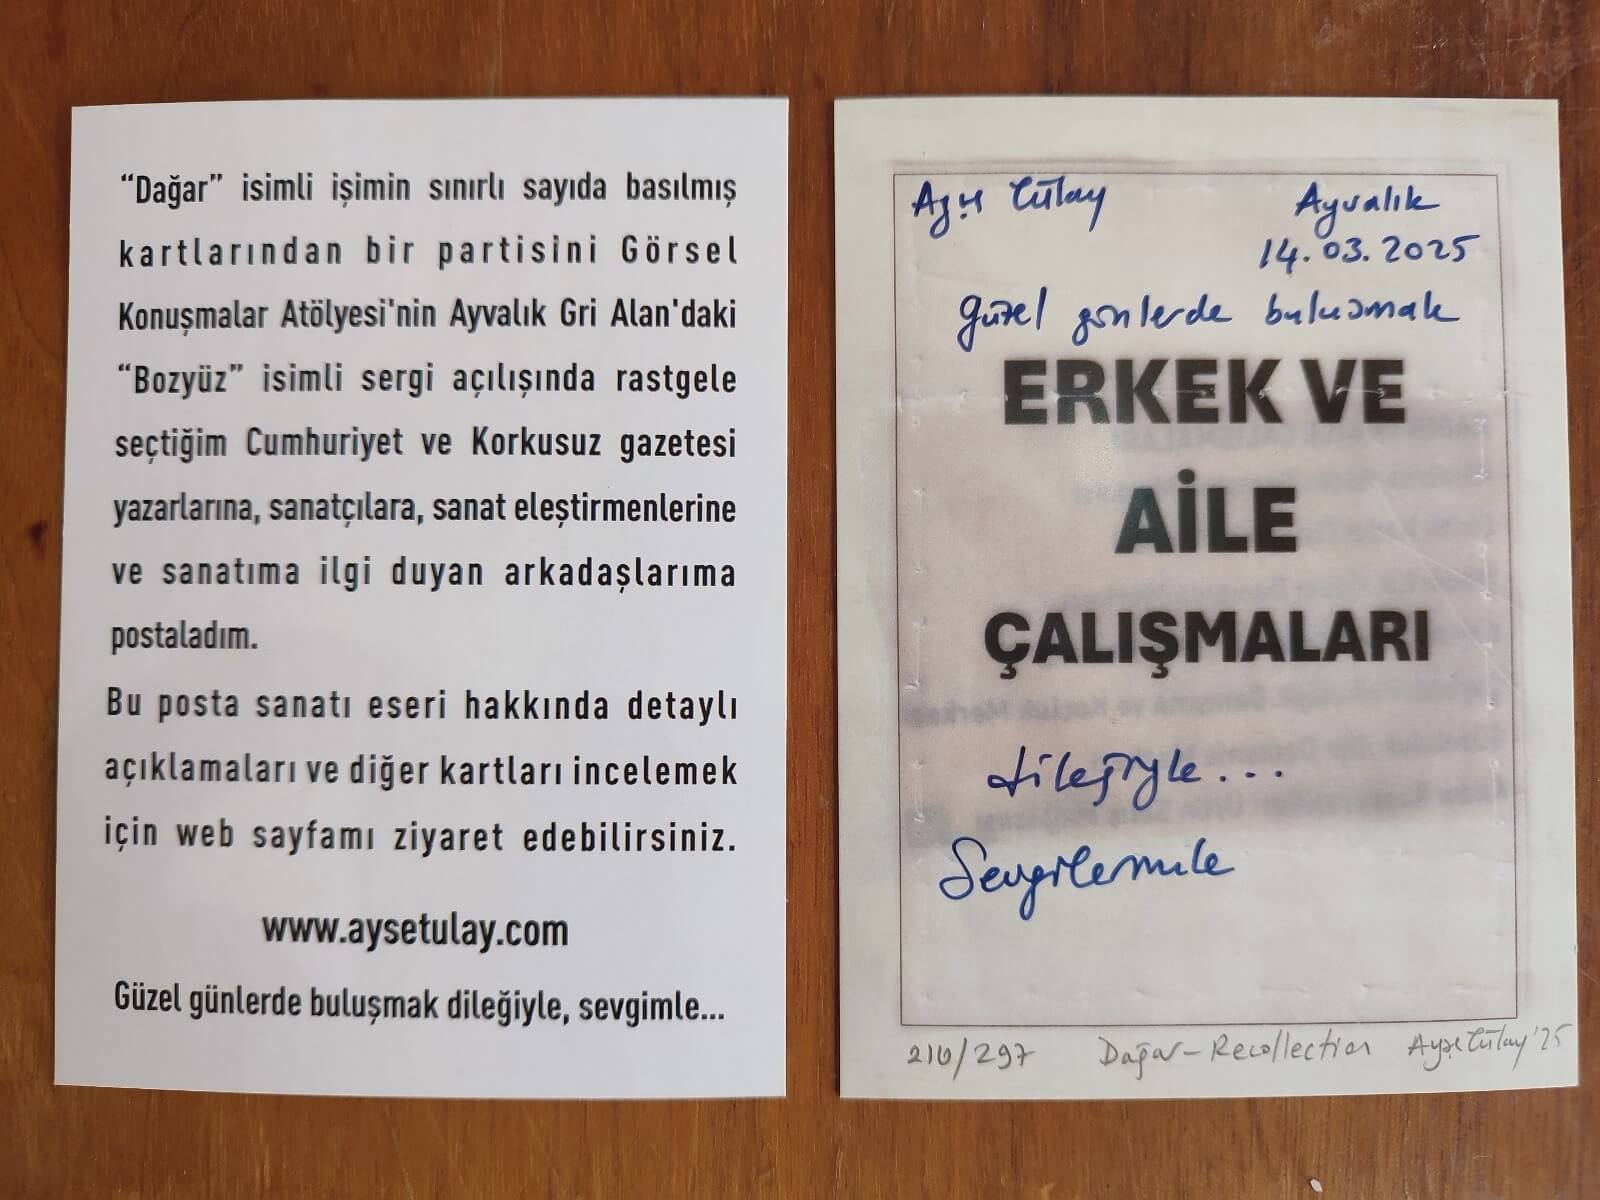 “Dağar” isimli işimin sınırlı sayıda basılmış
kartlarından bir partisini Görsel
Konuşmalar Atölyesi'nin Ayvalık Gri Alan'daki
“Bozyüz” isimli sergi açılışında rastgele
seçtiğim Cumhuriyet ve Korkusuz gazetesi
yazarlarına, sanatçılara, sanat eleştirmenlerine
ve sanatıma ilgi duyan arkadaşlarıma
postaladım.
Bu posta sanatı eseri hakkında detaylı
açıklamaları ve diğer kartları incelemek
için web sayfamı ziyaret edebilirsiniz.
www.aysetulay.com
Güzel günlerde buluşmak dileğiyle, sevgimle...
Ayşe Tülay
Ayvalık
14.03.2025
Güzel günlerde buluşmak
ERKEK VE
AİLE
ÇALIŞMALARI
dileğiyle...
Sevgilerimle
210/297 Dağar-Recollection Ayşe Tülay'25